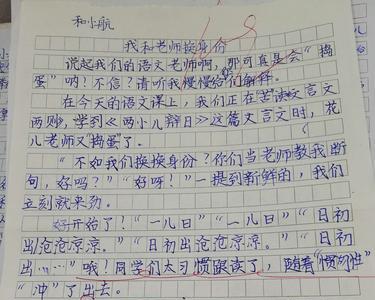 和小航
我和老师换身份
说起我们的语文老师啊,那可真是会“捣
蛋”呐?不信?请听我慢慢给们解释。
在今天的语文课上,我们正在苦读文言文
两则,学到《两小儿辩日》这篇文言文时,花
儿老师又“捣蛋”了。
“不如我们换换身份?你们当老师教我断
句,好吗?”“好呀!”一提到新鲜的,我们
立刻就来劲。
好开始了!“一儿曰”“一儿曰”“日初
出沧沧凉凉。”“日初出沧沧凉凉。”“日初
出……”哦!同学们太习惯跟读了,随着“惯性”
“冲”了出去。